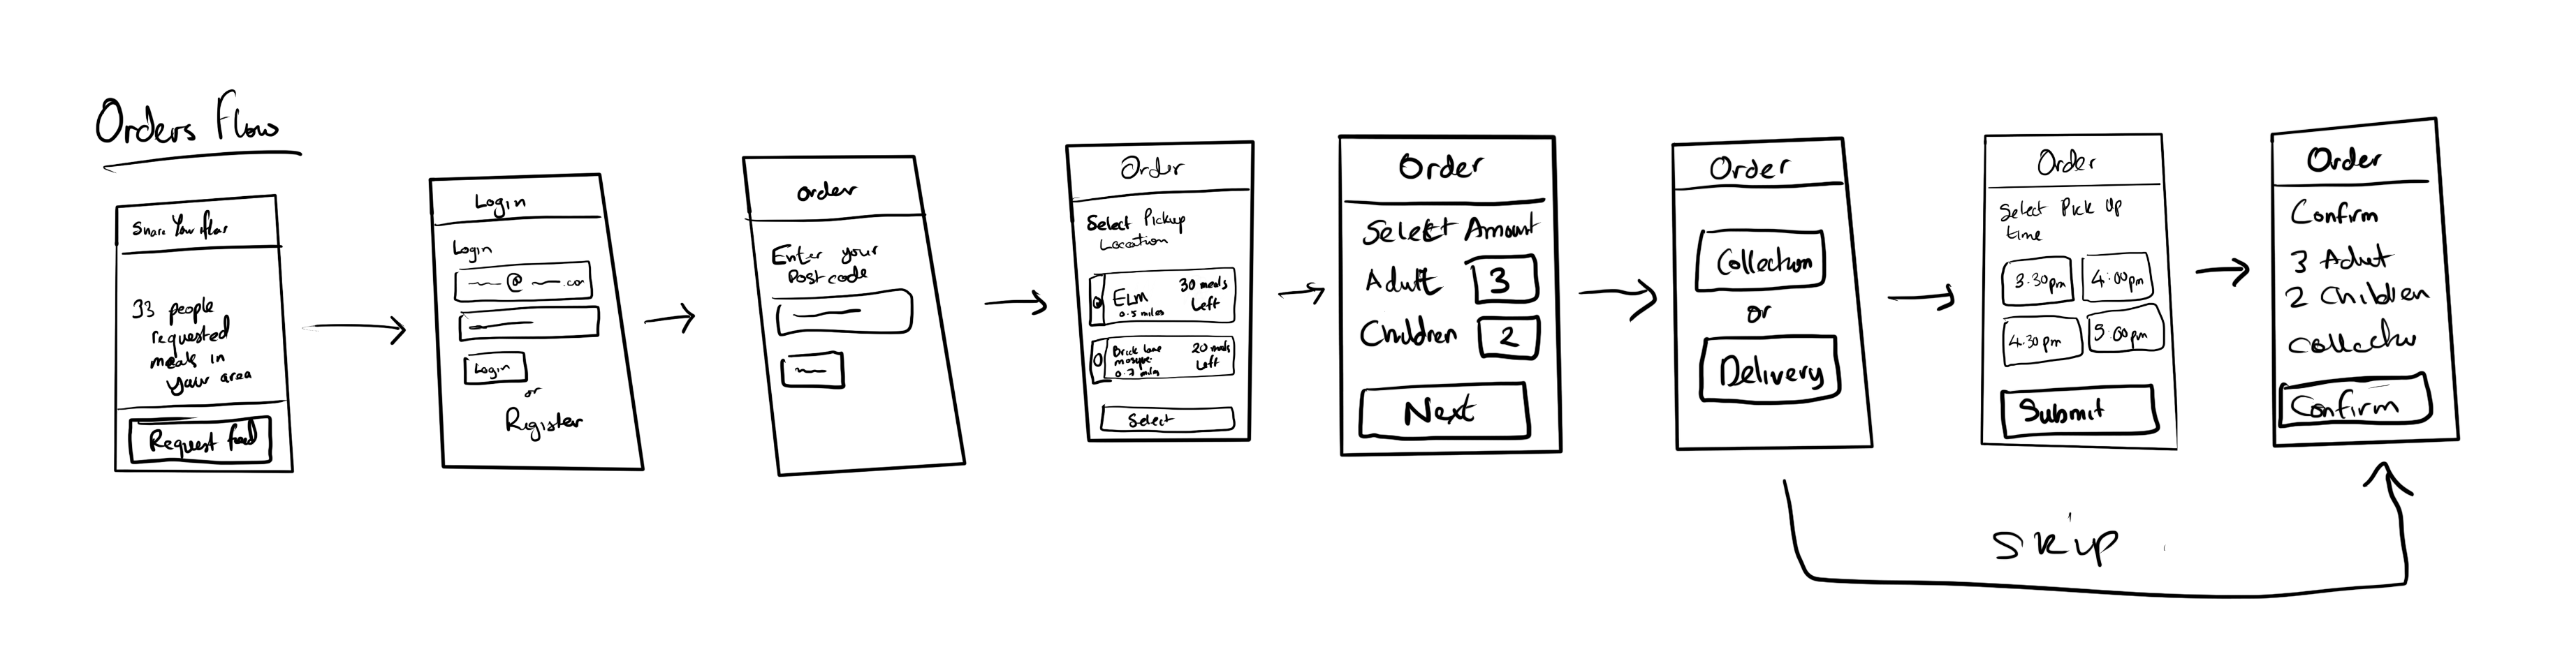 Orders Flow
Share Your Iftar
33 people
requested
meals in
your area
Request food
Login
Login
@ .com
Login
or
Register
order
Enter your
Postcode
Order
Select Pickup
Location
ELM
0.5 miles
30 meals
Left
Brick lane
mosque
0.7 miles
20 meals
Left
Select
Order
Select Amount
Adult 3
Children 2
Next
Order
Collection
or
Delivery
Order
Select Pick Up
time
3.30pm
4:00pm
4.30pm
5:00pm
Submit
Order
Confirm
3 Adult
2 Children
Collection
Confirm
skip